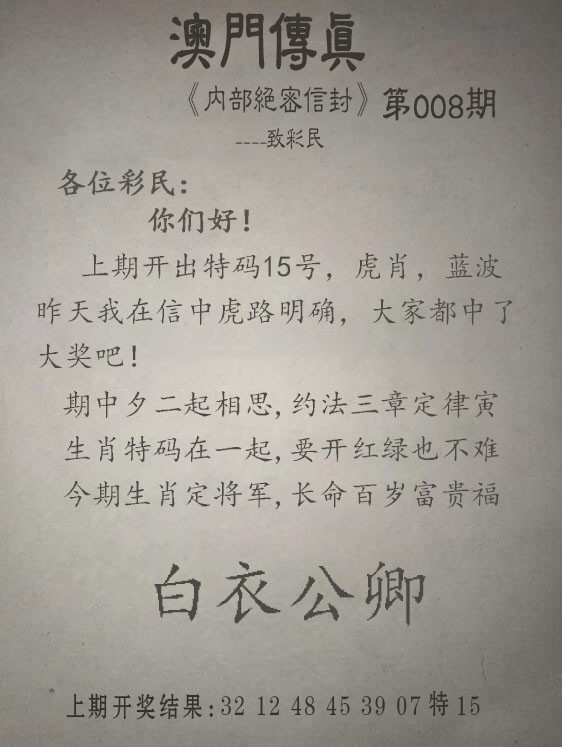 澳門傳真
《内部絕密信封》第008期
----致彩民
各位彩民：
你们好！
上期开出特码15号，虎肖，蓝波
昨天我在信中虎路明确，大家都中了
大奖吧！
期中夕二起相思,约法三章定律寅
生肖特码在一起,要开红绿也不难
今期生肖定将军,长命百岁富贵福
白衣公卿
上期开奖结果:32 12 48 45 39 07 特 15